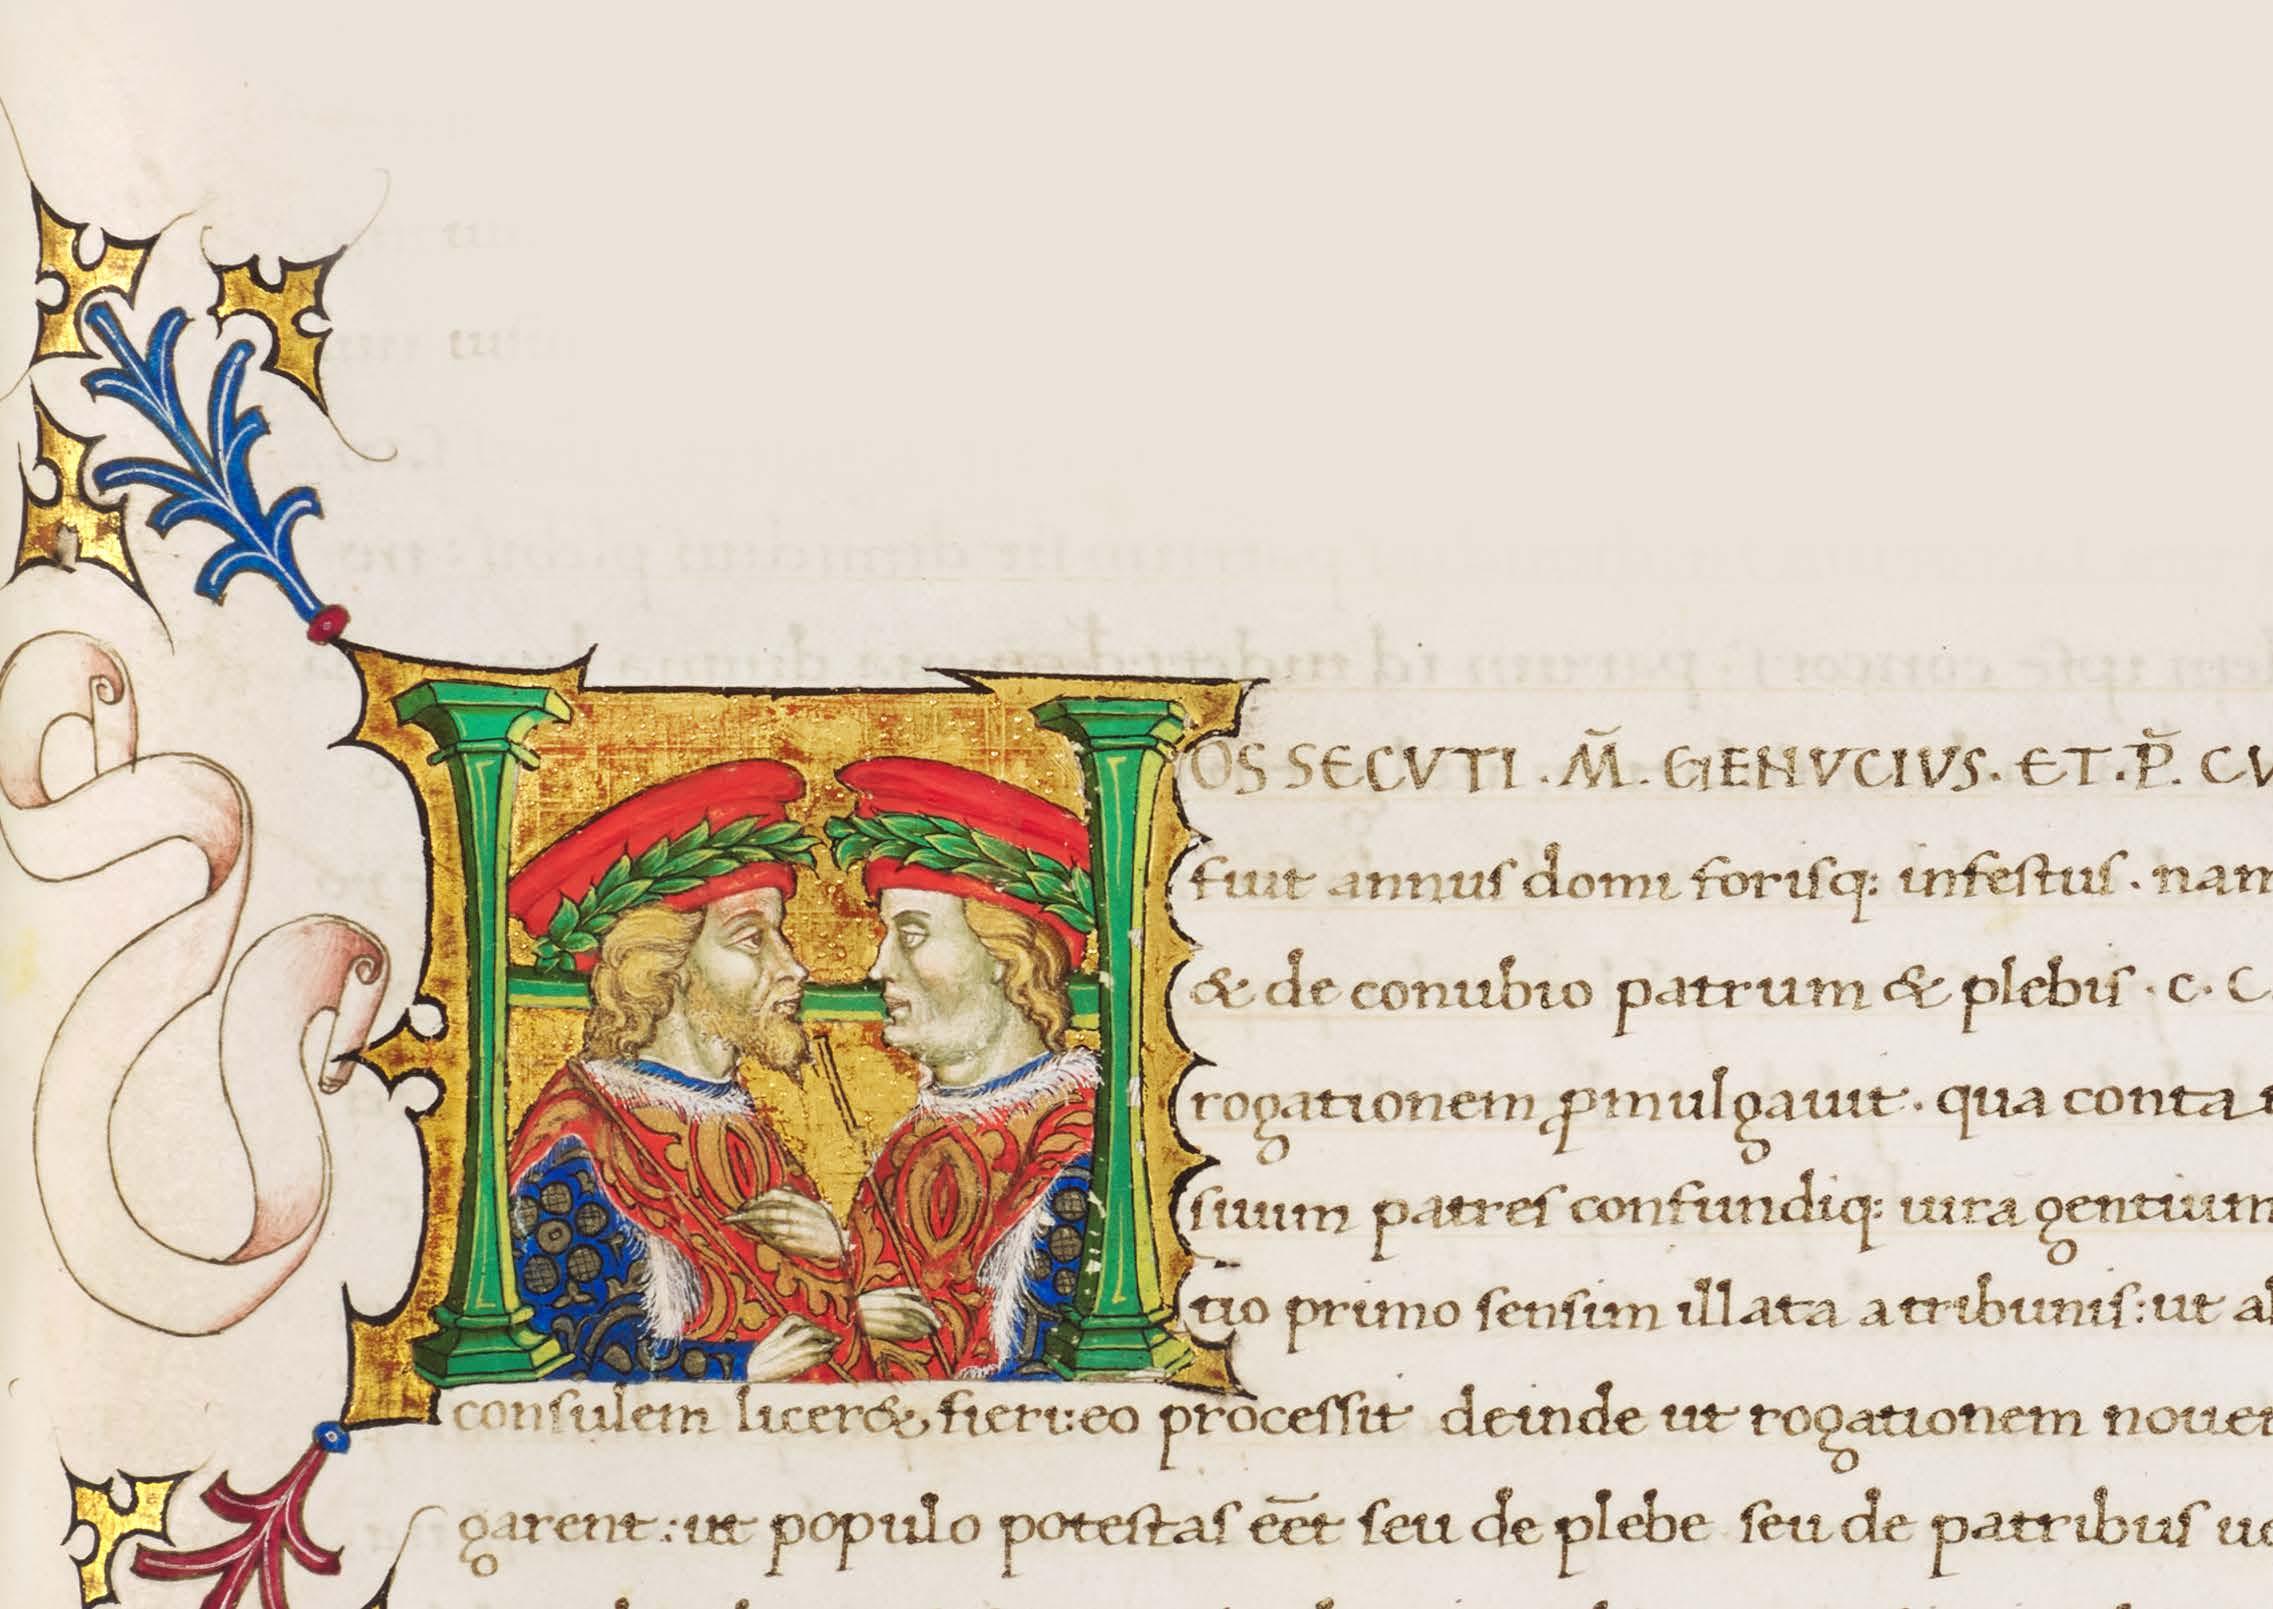 HOS SECVTI · M̃. GENVCIVS · ET · P̃. CV
fuit annus domi forisq: infestus · nam
& de conubio patrum & plebis · c. C
rogationem ꝓmulgauit · qua conta
suum patres confundiq: iura gentium
tio primo sensim illata a tribunis: ut al
consulem licer& fieri: eo processit deinde ut rogationem nouem
garent: ut populo potestas eēt seu de plebe seu de patribus uo